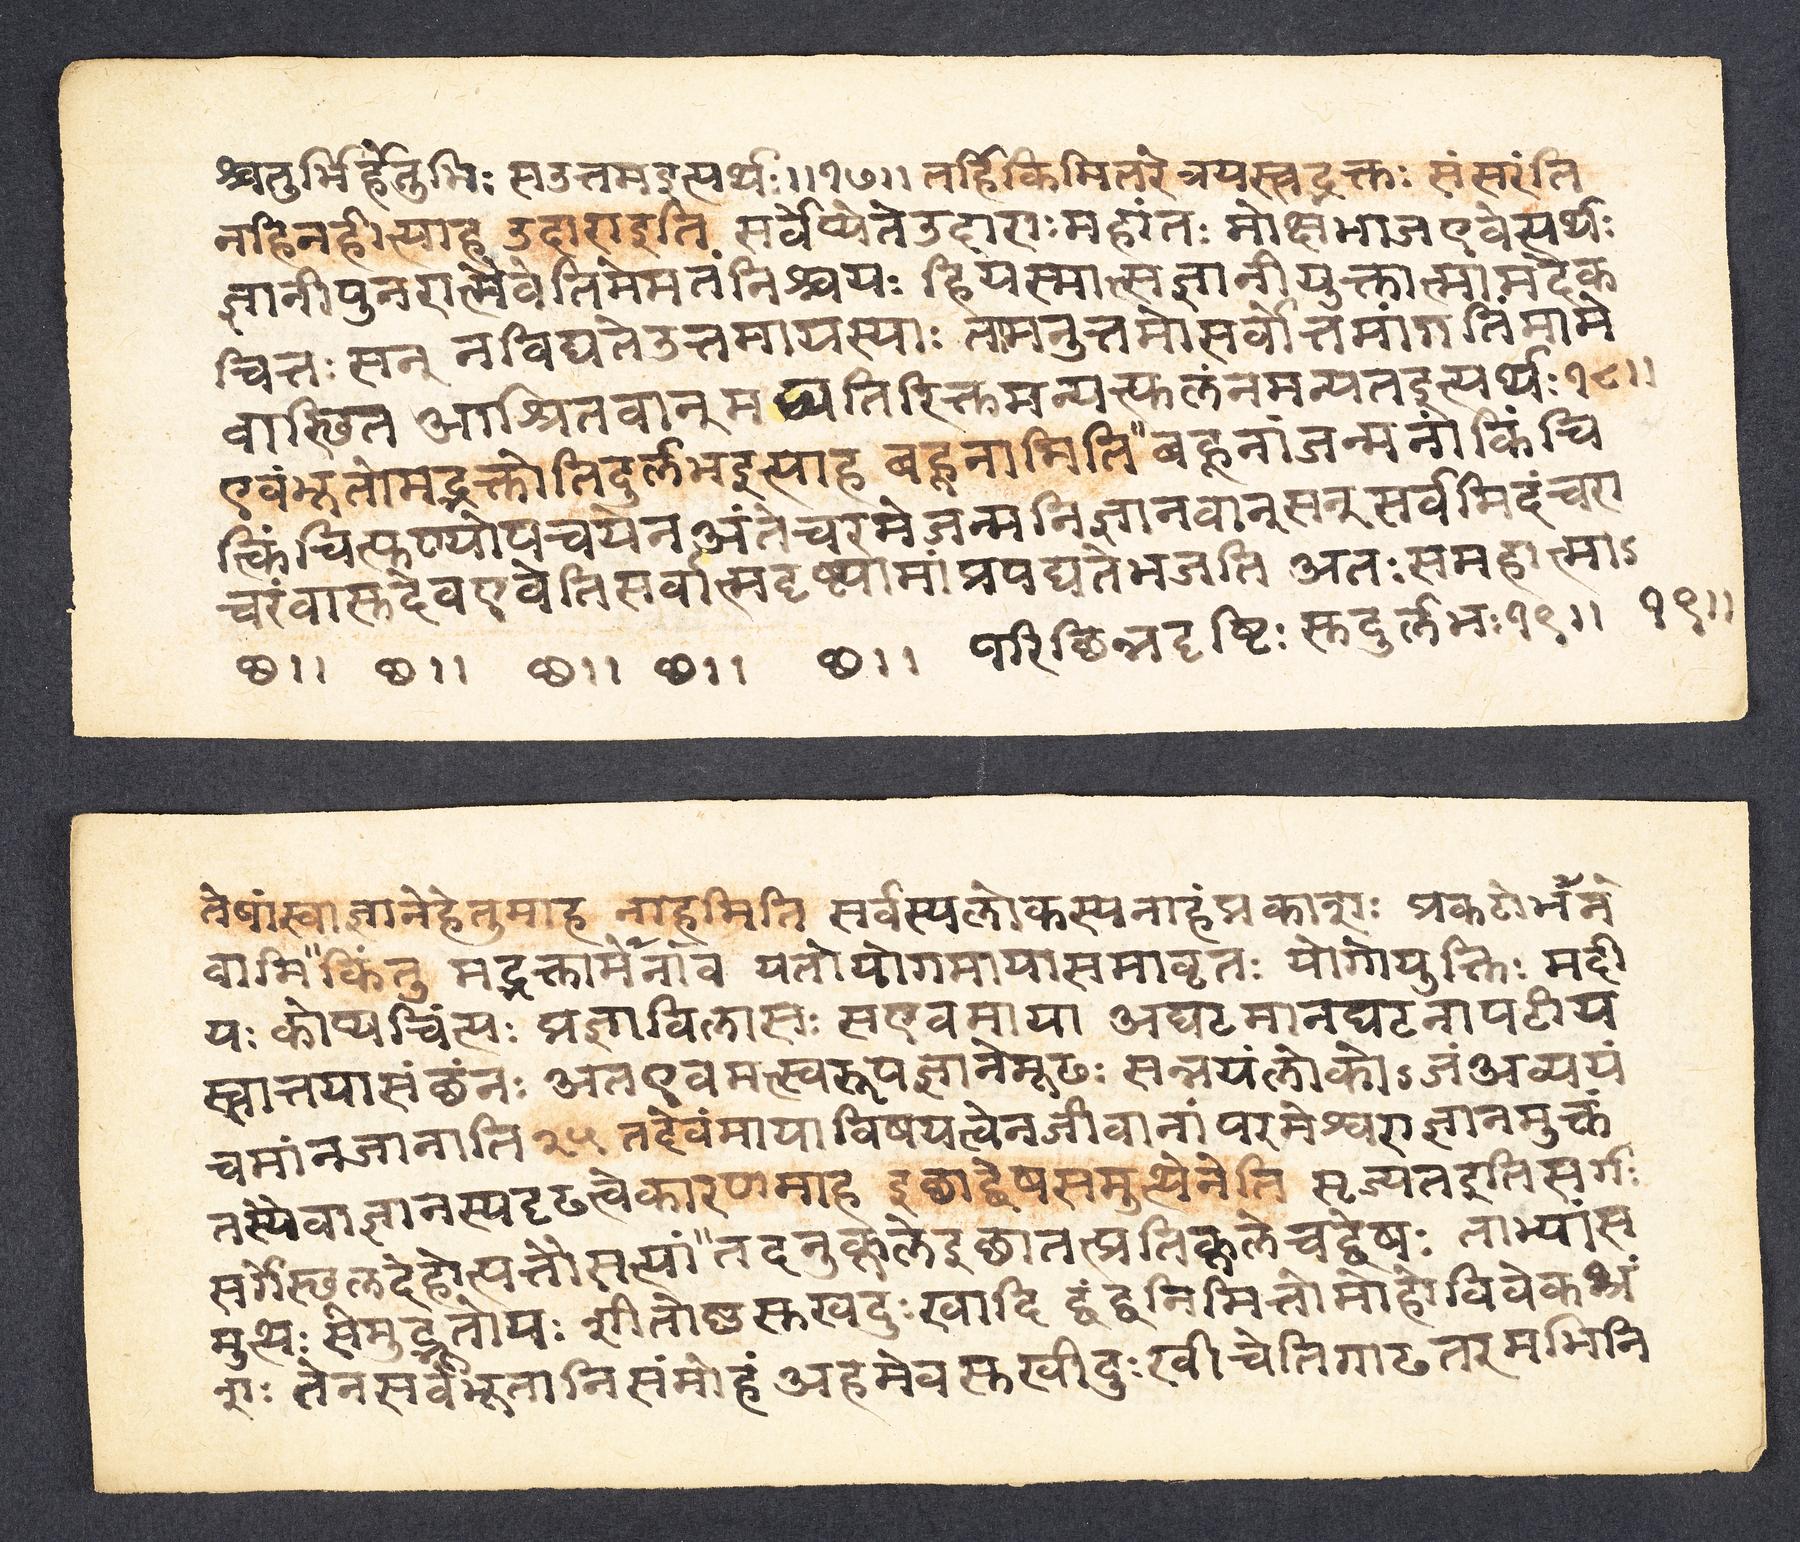 श्चतुर्भिर्हेतुभिः सउत्तमइत्यर्थः॥१७॥ तर्हिकिमितरेत्रयस्त्वद्भक्तः संसरंति
नहिनहीत्याह उदाराइति सर्वेप्येतेउदाराःमहांतः मोक्षभाजएवेत्यर्थः
ज्ञानीपुनरात्मैवेतिमेमतंनिश्चयः हियस्मात्सज्ञानीयुक्तात्मामदेक
चित्तः सन् नविद्यतेउत्तमायस्याः तामनुत्तमांसर्वोत्तमांगतिंमामे
वास्थित आश्रितवान् मद्व्यतिरिक्तमन्यत्फलंनमन्यतइत्यर्थः१८॥
एवंभूतोमद्भक्तोतिदुर्लभइत्याह बहूनामिति"बहूनांजन्मनांकिंचि
त्किंचित्पुण्योपचयेनअंतेचरमेजन्मनिज्ञानवान्सन्सर्वमिदंचरा
चरंवासुदेवएवेतिसर्वात्मदृष्ट्यामांप्रपद्यतेभजति अतःसमहात्माऽ
छ॥ छ॥ छ॥ छ॥ छ॥ परिछिन्नदृष्टिः सुदुर्लभः१९॥ १९॥
तेषांस्वाज्ञानेहेतुमाह नाहमिति सर्वस्यलोकस्यनाहंप्रकाशः प्रकटोर्भन
वामि"किंतु मद्भक्तामेर्नांव यतोयोगमायासमावृतः योगोयुक्तिः मदी
यः कोप्यचिंत्यः प्रज्ञाविलासः सएवमाया अघटमानघटनापटीय
स्त्वात्तयासंछंनः अतएवमत्स्वरूपज्ञानेमूढः सन्नयंलोकोऽजंअव्ययं
चमांनजानाति २५ तदेवंमायाविषयत्वेनजीवानांपरमेश्वराज्ञानमुक्तं
तस्येवाज्ञानस्यदृढत्वेकारणमाह इछाद्वेषसमुत्थेनेति सृज्यतइतिसर्गः
सर्गेस्थूलदेहोत्पत्तौसत्यां"तदनुकूलेइछातत्प्रतिकूलेचद्वेषः ताभ्यांस
मुत्थः समुद्भूतोयः शीतोष्णसुखदुःखादि द्वंद्वनिमित्तोमोहोविवेकभ्रं
शः तेनसर्वभूतानिसंमोहं अहमेवसुखीदुःखीचेतिगाढतरमभिनि